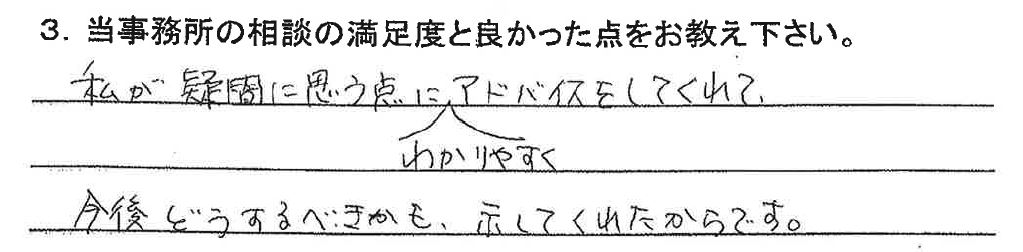 3. 当事務所の相談の満足度と良かった点をお教え下さい。
私が疑問に思う点に、アドバイスをしてくれて、
わかりやすく
今後どうするべきかも、示してくれたからです。